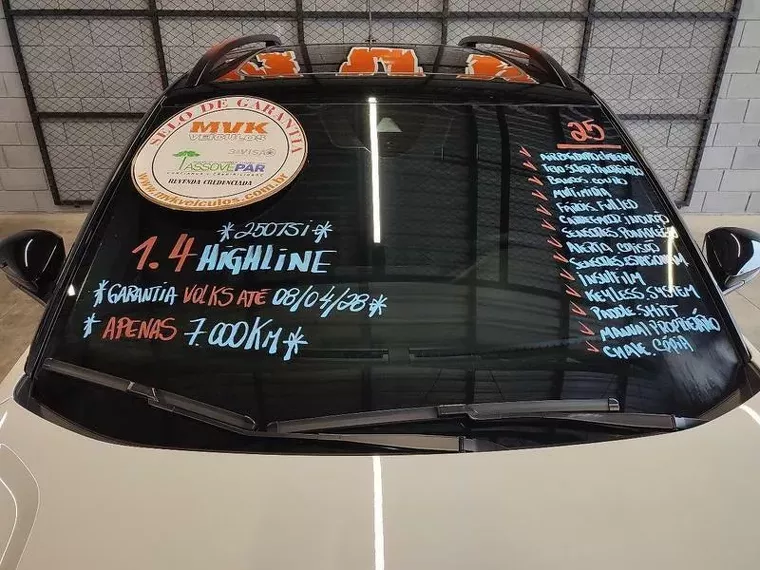 SELO DE GARANTIA
MVK
VEÍCULOS
ASSOVEPAR
REVENDA CREDENCIADA
www.mvkveiculos.com.br
*250TSi*
1.4 HIGHLINE
*GARANTIA VOLKS ATÉ 08/04/28*
* APENAS 7.000KM*
25
BANCOS COURO
MULTIMÍDIA
FARÓIS FULL LED
CARREGADOR INDUÇÃO
ALERTA COLISÃO
INSULFILM
KEYLESS SYSTEM
PADDLE SHIFT
MANUAL PROPRIETÁRIO
CHAVE CÓPIA